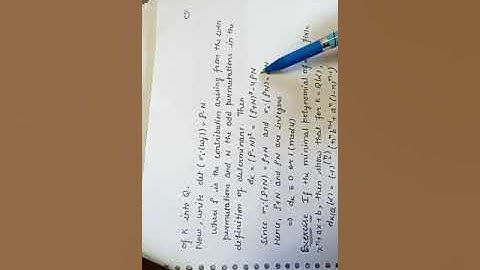 of K into Q.
Now, write det (σi(ωj)) = P-N
where P is the contribution arising from the even
permutations and N the odd permutations in the
definition of determinants. Then
dK = (P-N)² = (P+N)² - 4PN
Since σi(P+N) = P+N and σi(PN) = PN
Hence, P+N and PN are integers
⇒ dK ≡ 0 or 1 (mod 4)
Exercise If the minimal polynomial of
xⁿ+ax+b, then show that for K = Q(α),